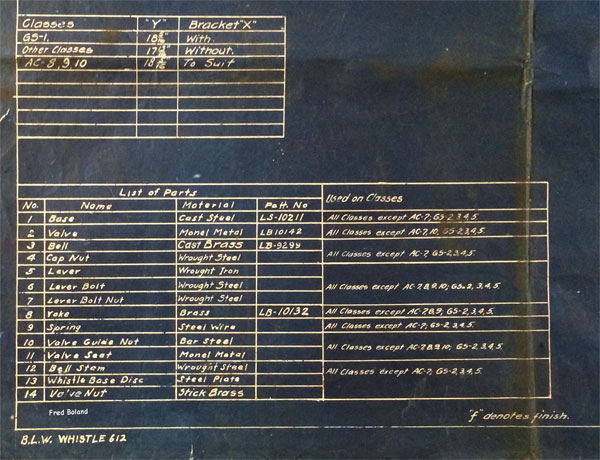 Classes "Y" Bracket "X"
GS-1. 18 With.
Other Classes 17 Without.
AC-8,9,10 18 To Suit
List of Parts Used on Classes
No. Name Material Patt. No
1 Base Cast Steel LS-10211 All Classes except AC-7; GS-2,3,4,5.
2 Valve Monel Metal LB10142 All Classes except AC-7,10, GS-2,3,4,5.
3 Bell Cast Brass LB-9299
4 Cap Nut Wrought Steel All Classes except AC-7, GS-2,3,4,5.
5 Lever Wrought Iron
6 Lever Bolt Wrought Steel All Classes except AC-7,8,9,10; GS-2,3,4,5.
7 Lever Bolt Nut Wrought Steel
8 Yoke Brass LB-10132 All Classes except AC-7,8,9; GS-2,3,4,5.
9 Spring Steel Wire All Classes except AC-7; GS-2,3,4,5.
10 Valve Guide Nut Bar Steel All Classes except AC-7,8,9,10; GS-2,3,4,5.
11 Valve Seat Monel Metal
12 Bell Stem Wrought Steel All Classes except AC-7; GS-2,3,4,5.
13 Whistle Base Disc Steel Plate
14 Valve Nut Stick Brass
Fred Boland
"f" denotes finish.
B.L.W. WHISTLE 612